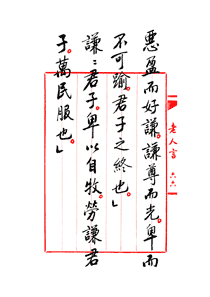 惡盈而好謙。謙尊而光。卑而
不可踰。君子之終也。」
謙謙君子。卑以自牧。勞謙君
子。萬民服也。」
老人言 六六